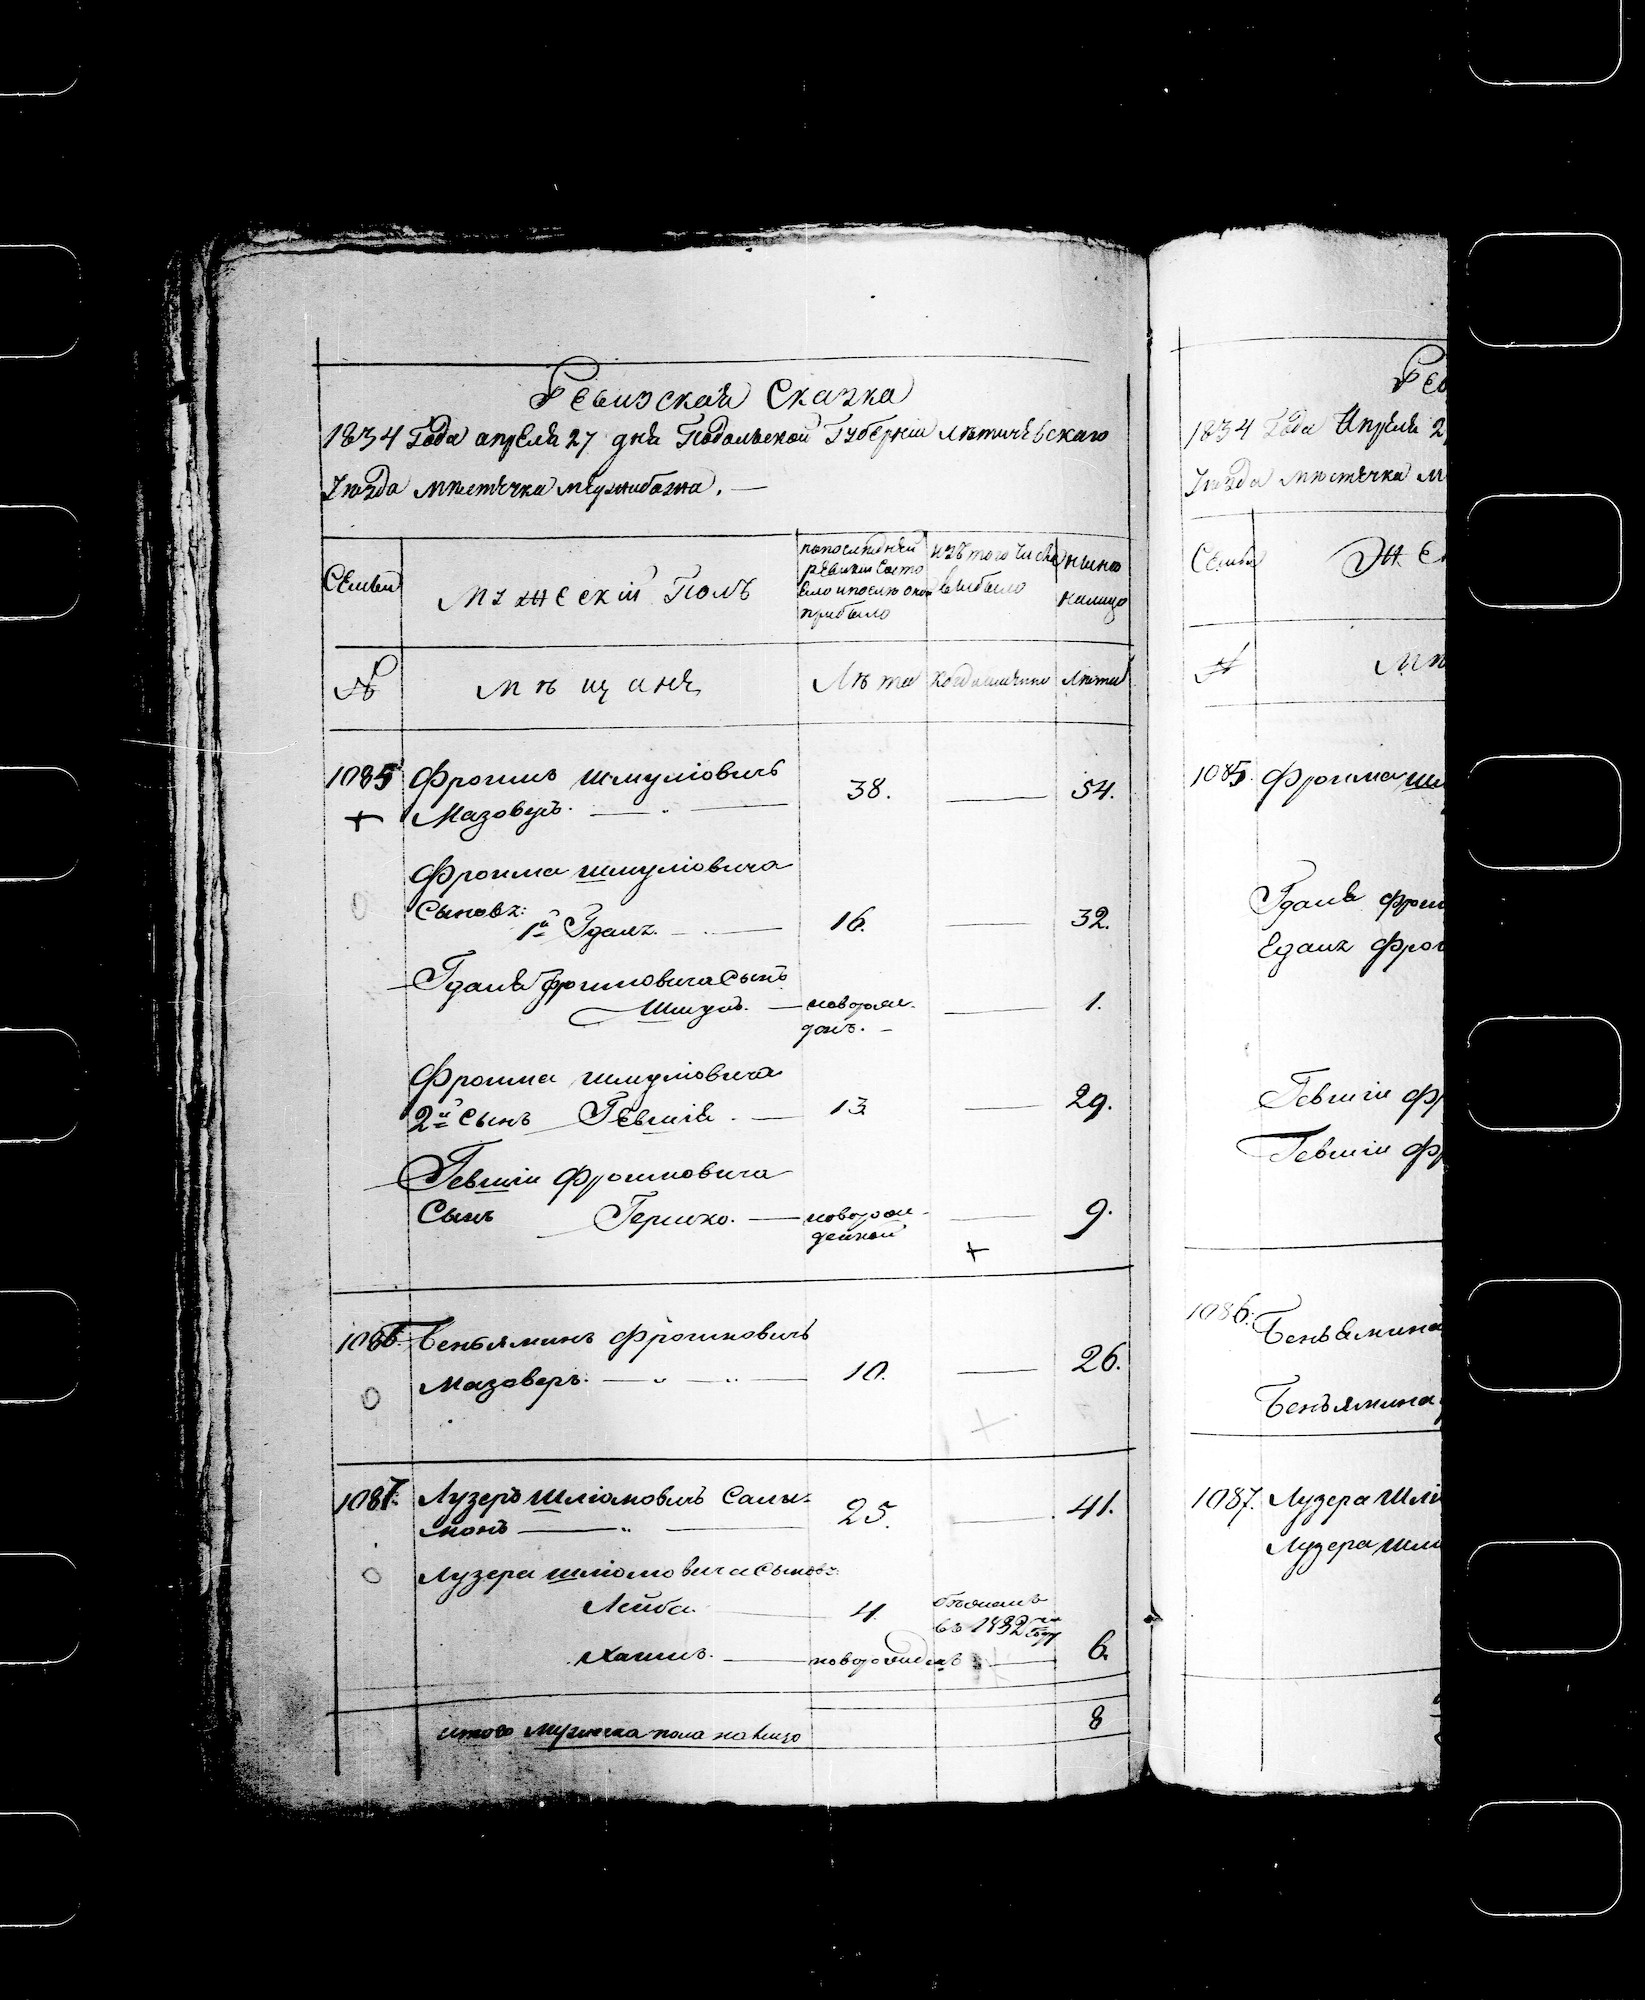 Ревизская Сказка
1834 Года апреля 27 дня Подольской Губернии Летичевскаго
Уезда местечка меджибожа. —
Семьи
Мужеский Полъ
попоследней
ревизии состо
яло и после оной
прибыло
изъ того числа
выбыло
ныне
налицо
№
мещане
Лета
когда именно
лета
1085 Фроимъ Шмулиовичъ
Мазоверъ. — 38. — 54.
Фроима Шмулиовича
Сыновъ:
1й Гдаль. — 16. — 32.
Гдаля Фроимовича Сынъ
Шмуль. — новорож- — 1.
данъ. —
Фроима Шмулиовича
2й Сынъ Гевшия. — 13 — 29.
Гевшии Фроимовича
Сынъ Гершко. — новорож- — 9.
денной
1086. Беньяминъ Фроимовичъ
Мазоверъ. — 10. — 26.
1087. Лузеръ Шлиомовичъ Салы-
монъ — 25. — 41.
Лузера Шлиомовича Сыновъ:
Лейба. — 4
въ 1832м году
Хаимъ. — новорожденъ — 6.
итого Мужеска пола налицо 8
Рев
1834 Года Апреля 2
Уезда местечка м
Семьи
Же
№
Ме
1085. Фроима Шм
Гдаля Фрои
Гдаля Фрои
Гевшии Фр
Гевшии Фр
1086. Беньямина
Беньямина
1087. Лузера Шли
Лузера Шли